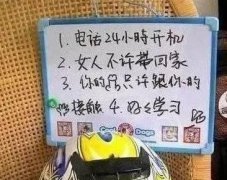 1. 电话24小時开机
2. 女人不许带回家
3. 你的只许跟你的
接触 4. 好好学习
Dogs